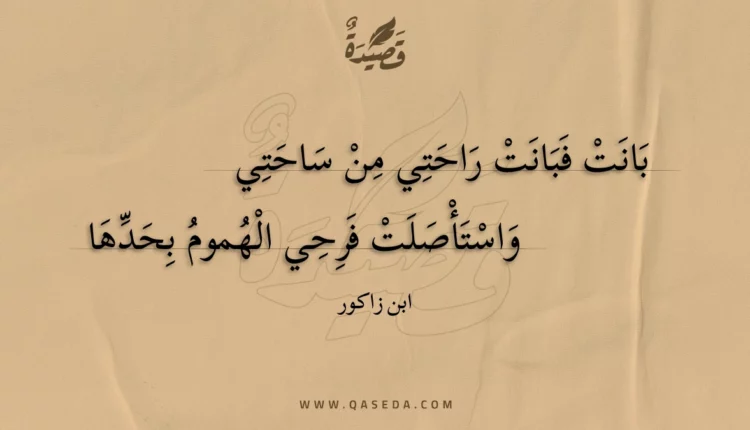 قَصِيْدَةٌ
بَانَتْ فَبَانَتْ رَاحَتِي مِنْ سَاحَتِي
وَاسْتَأْصَلَتْ فَرِحِي الْهُمومُ بِحَدِّهَا
ابن زاكور
WWW.QASEDA.COM